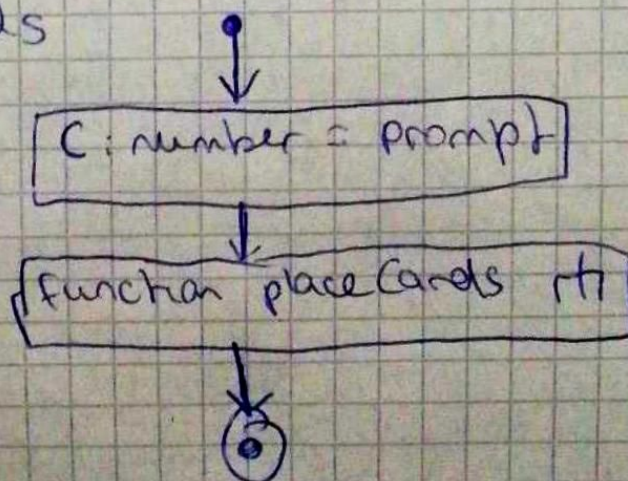 ds
C: number = prompt
function placeCards